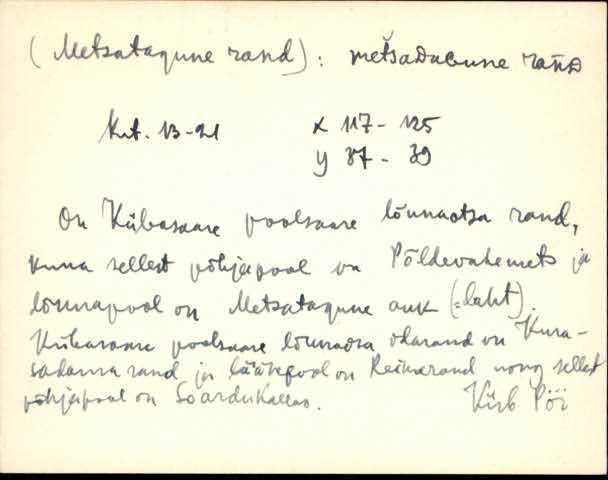 (Metsatagune rand): metsaDaGune rañD
Krt. 13-21 x 117- 125
y 37- 39
On Kübasaare poolsaare lõunaotsa rand,
kuna sellest põhjapool on Põldevahemets ja
lõunapool on Metsatagune auk (=laht).
Kübasaare poolsaare lõunaotsa idarand on Kura-
sadama rand ja läänepool on Reinarand ning sellest
põhjapool on Soardukallas. Kürb Pöi